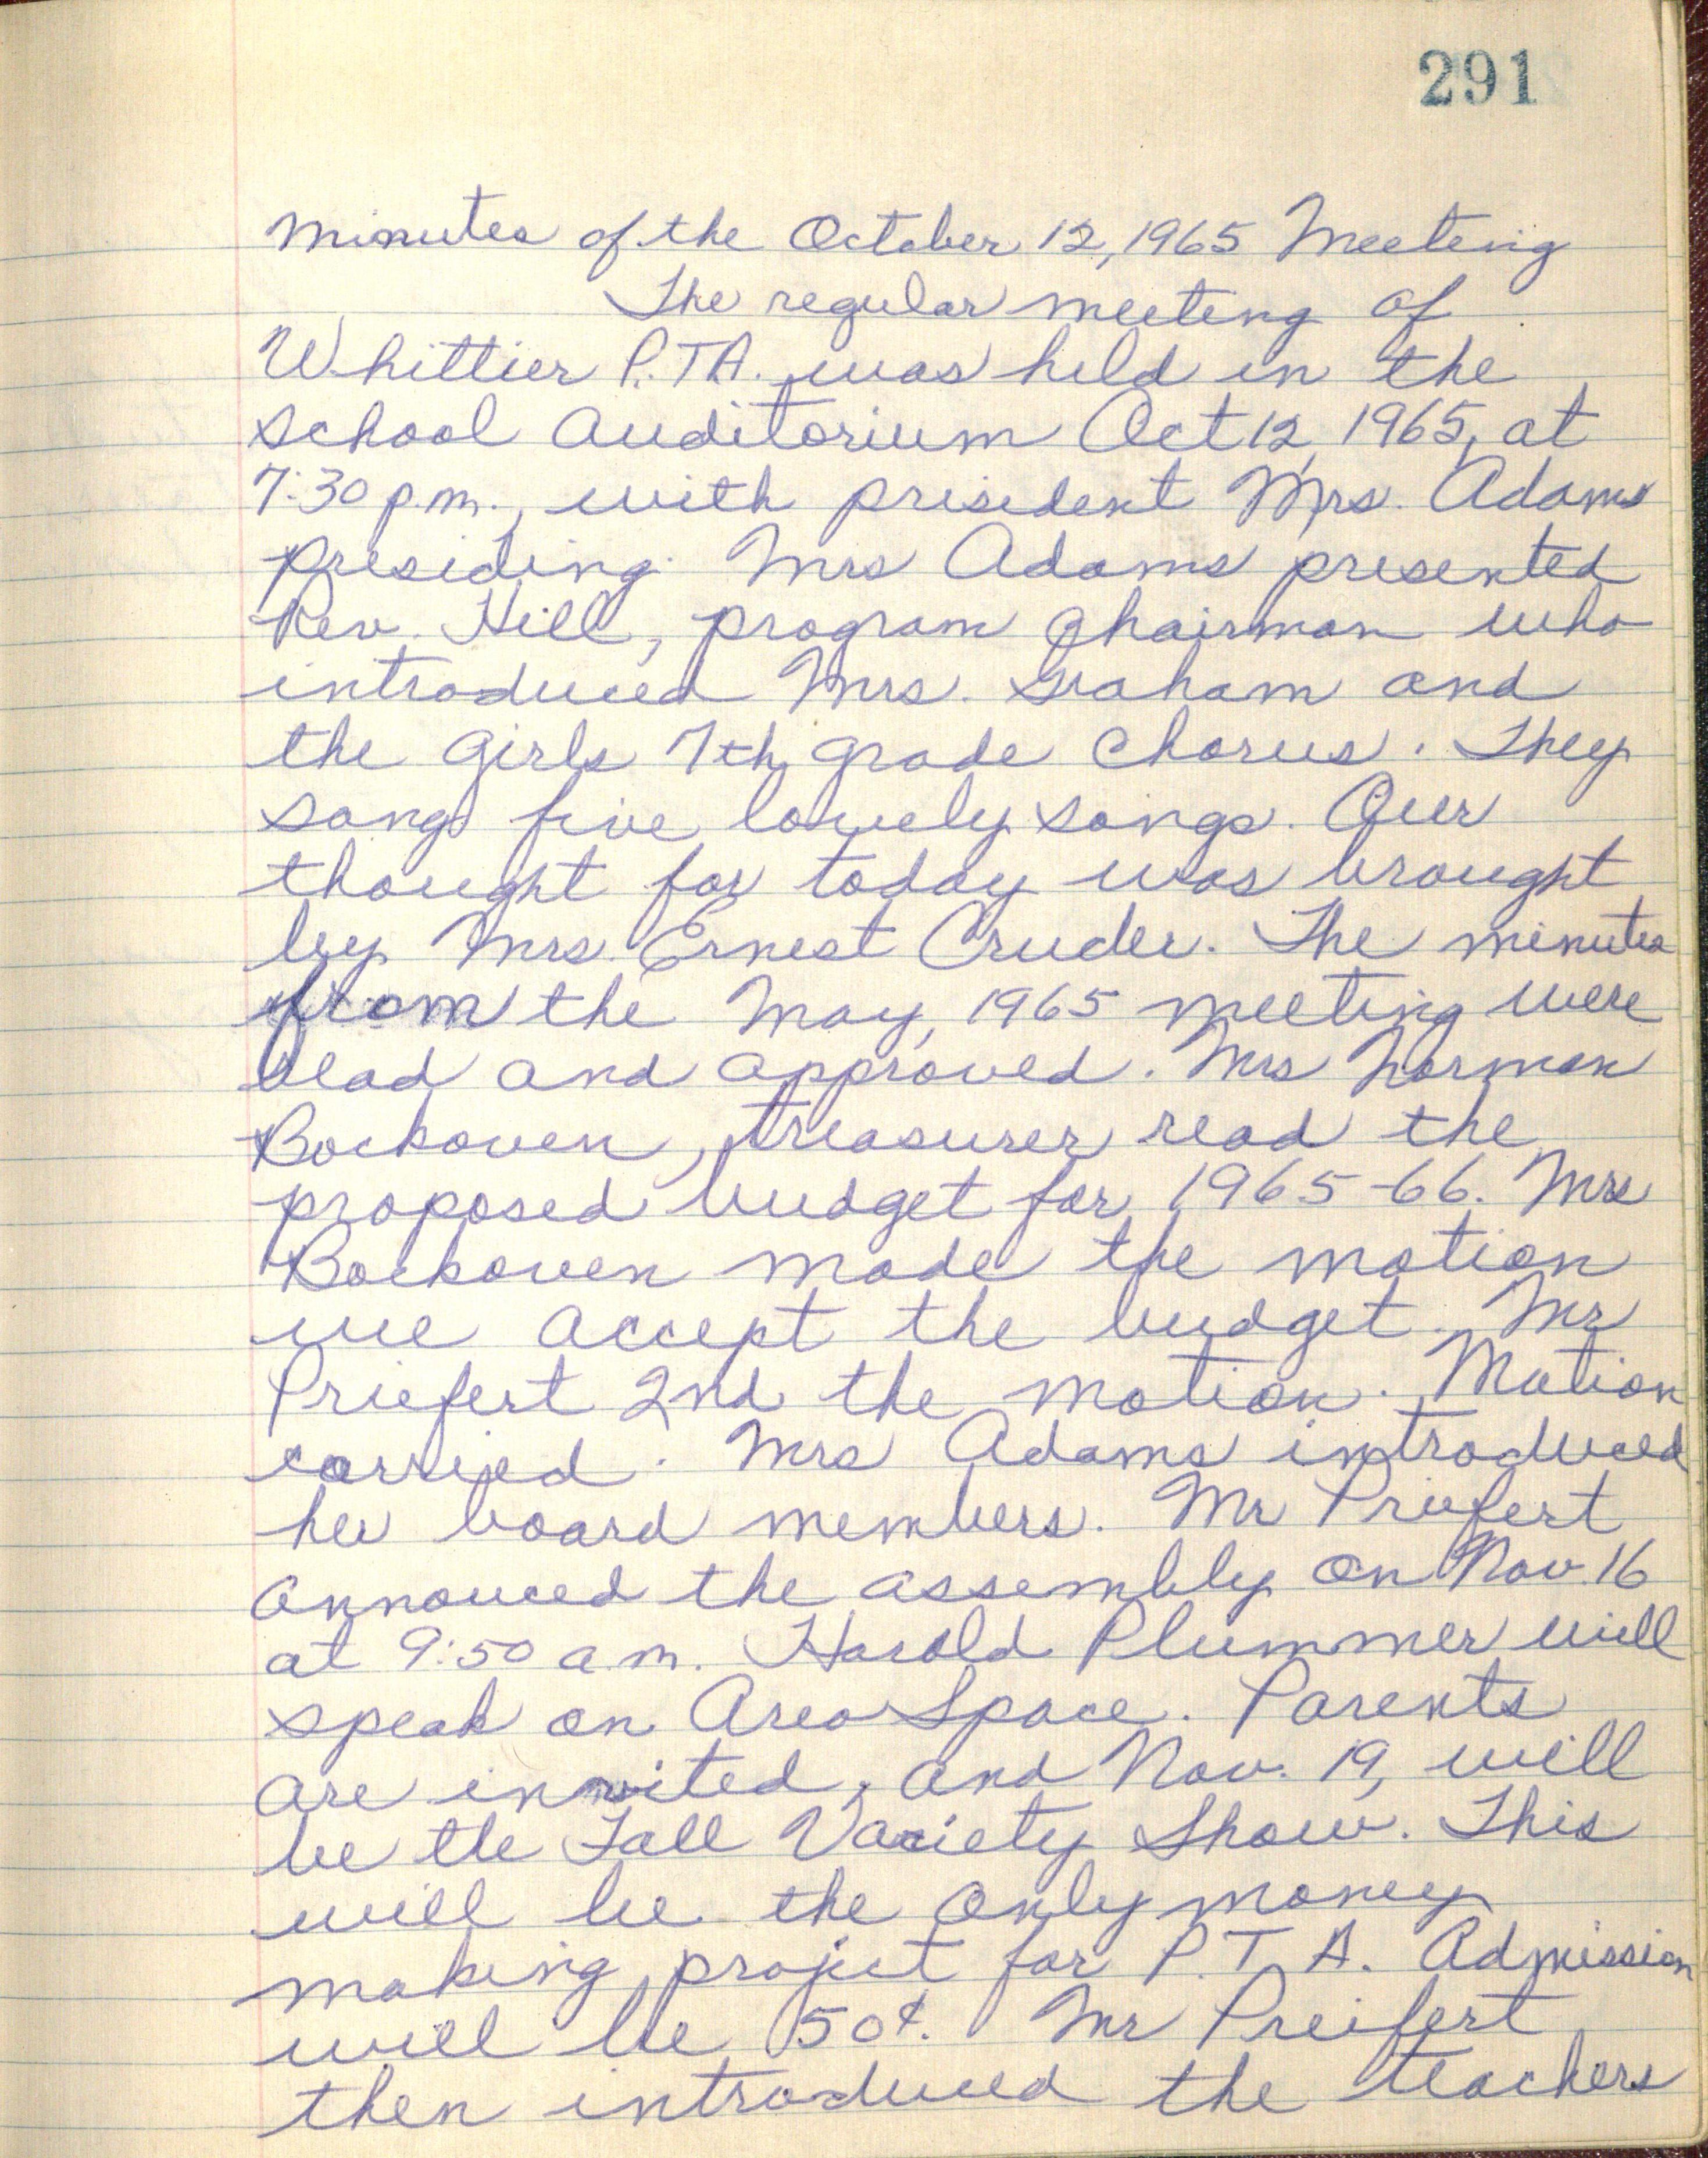 291
Minutes of the October 12, 1965 Meeting
The regular meeting of
Whittier P.T.A. was held in the
school auditorium Oct 12, 1965, at
7:30 p.m., with president Mrs. Adams
presiding. Mrs Adams presented
Rev. Hill, program chairman who
introduced Mrs. Graham and
the girls 7th grade chorus. They
sang five lovely songs. Our
thought for today was brought
by Mrs. Ernest Cruder. The minutes
from the May, 1965 meeting were
read and approved. Mrs Norman
Bockoven, treasurer read the
proposed budget for 1965-66. Mrs
Bockoven made the motion
we accept the budget. Mr
Priefert 2nd the motion. Motion
carried. Mrs Adams introduced
her board members. Mr Priefert
annouced the assembly on Nov. 16
at 9:50 a.m. Harold Plummer will
speak on Area Space. Parents
are invited, and Nov. 19, will
be the Fall Variety Show. This
will be the only money
making project for P.T.A. Admission
will be 50¢. Mr Preifert
then introduced the teachers